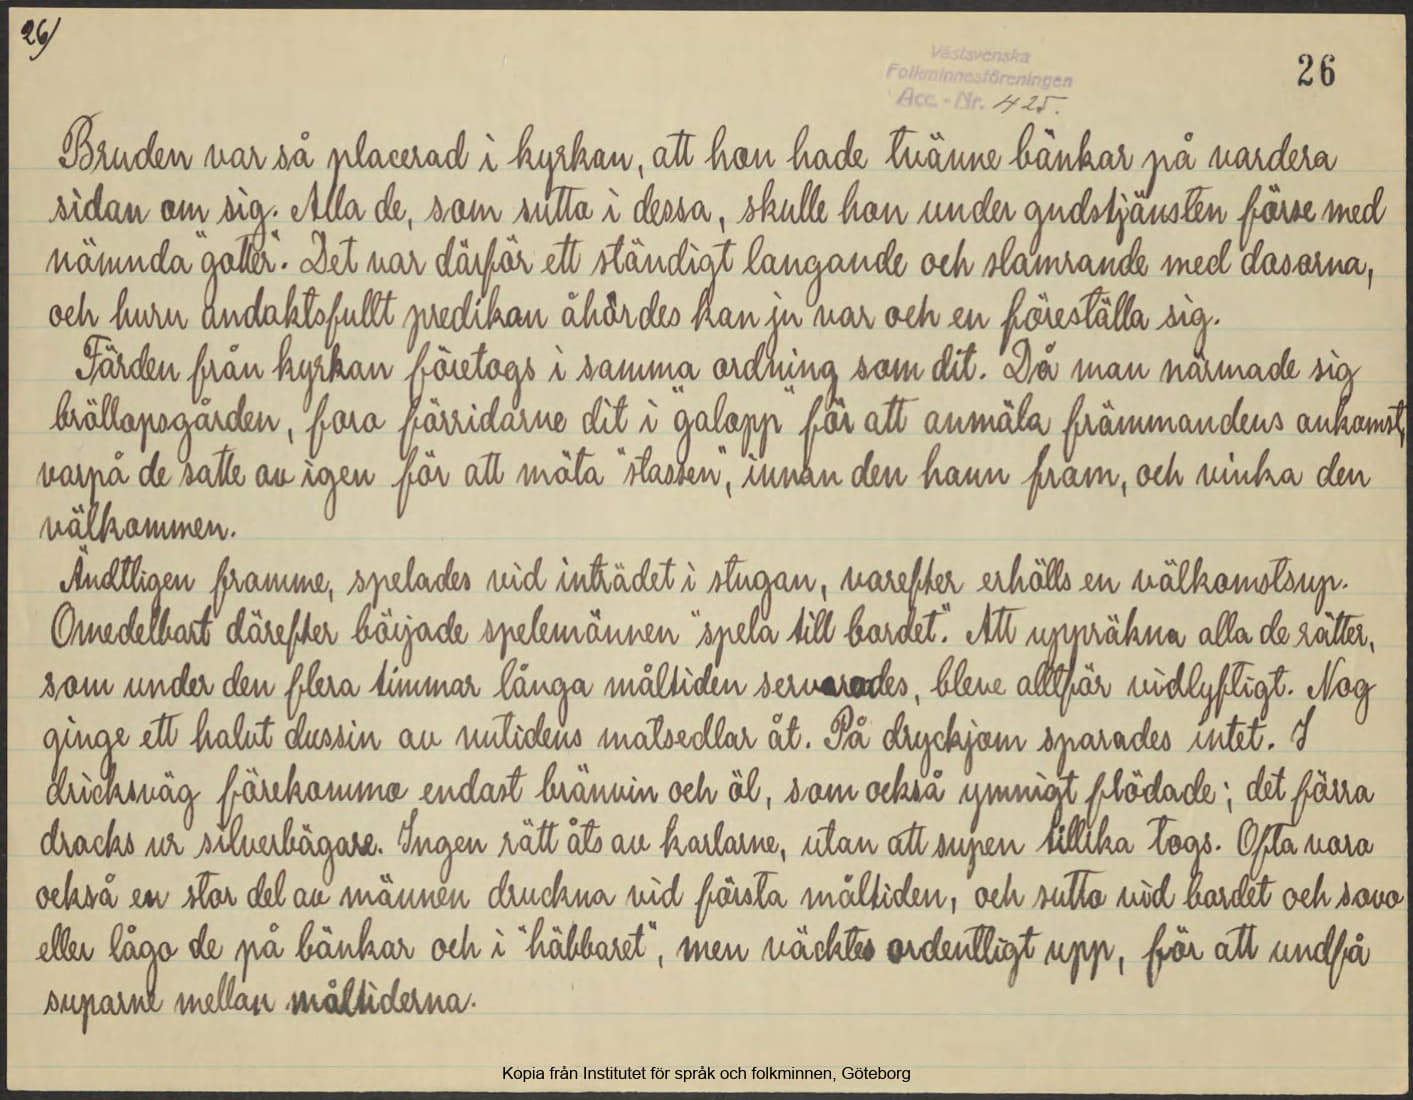 26/
Västsvenska
Folkminnesföreningen
Acc.-Nr. 425.
26
Bruden var så placerad i kyrkan, att hon hade tvänne bänkar på vardera
sidan om sig. Alla de, som sutto i dessa, skulle hon under gudstjänsten förse med
nämnda "gotter". Det var därför ett ständigt langande och slamrande med dosorna,
och huru andaktsfullt predikan åhördes kan ju var och en föreställa sig.
Färden från kyrkan företogs i samma ordning som dit. Då man närmade sig
bröllopsgården, foro förridarne dit i "galopp" för att anmäla främmandens ankomst,
varpå de satte av igen för att möta "stassen", innan den hann fram, och vinka den
välkommen.
Ändtligen framme, spelades vid inträdet i stugan, varefter erhölls en välkomstsup.
Omedelbart därefter började spelemännen "spela till bordet". Att uppräkna alla de rätter,
som under den flera timmar långa måltiden serverades, bleve alltför vidlyftigt. Nog
ginge ett halvt dussin av nutidens matsedlar åt. På dryckjom sparades intet. I
dricksväg förekommo endast brännvin och öl, som också ymnigt flödade; det förra
dracks ur silverbägare. Ingen rätt åts av karlarne, utan att supen tillika togs. Ofta voro
också en stor del av männen druckna vid första måltiden, och sutto vid bordet och sovo
eller lågo de på bänkar och i "häbbaret", men väcktes ordentligt upp, för att undfå
suparne mellan måltiderna.
Kopia från Institutet för språk och folkminnen, Göteborg